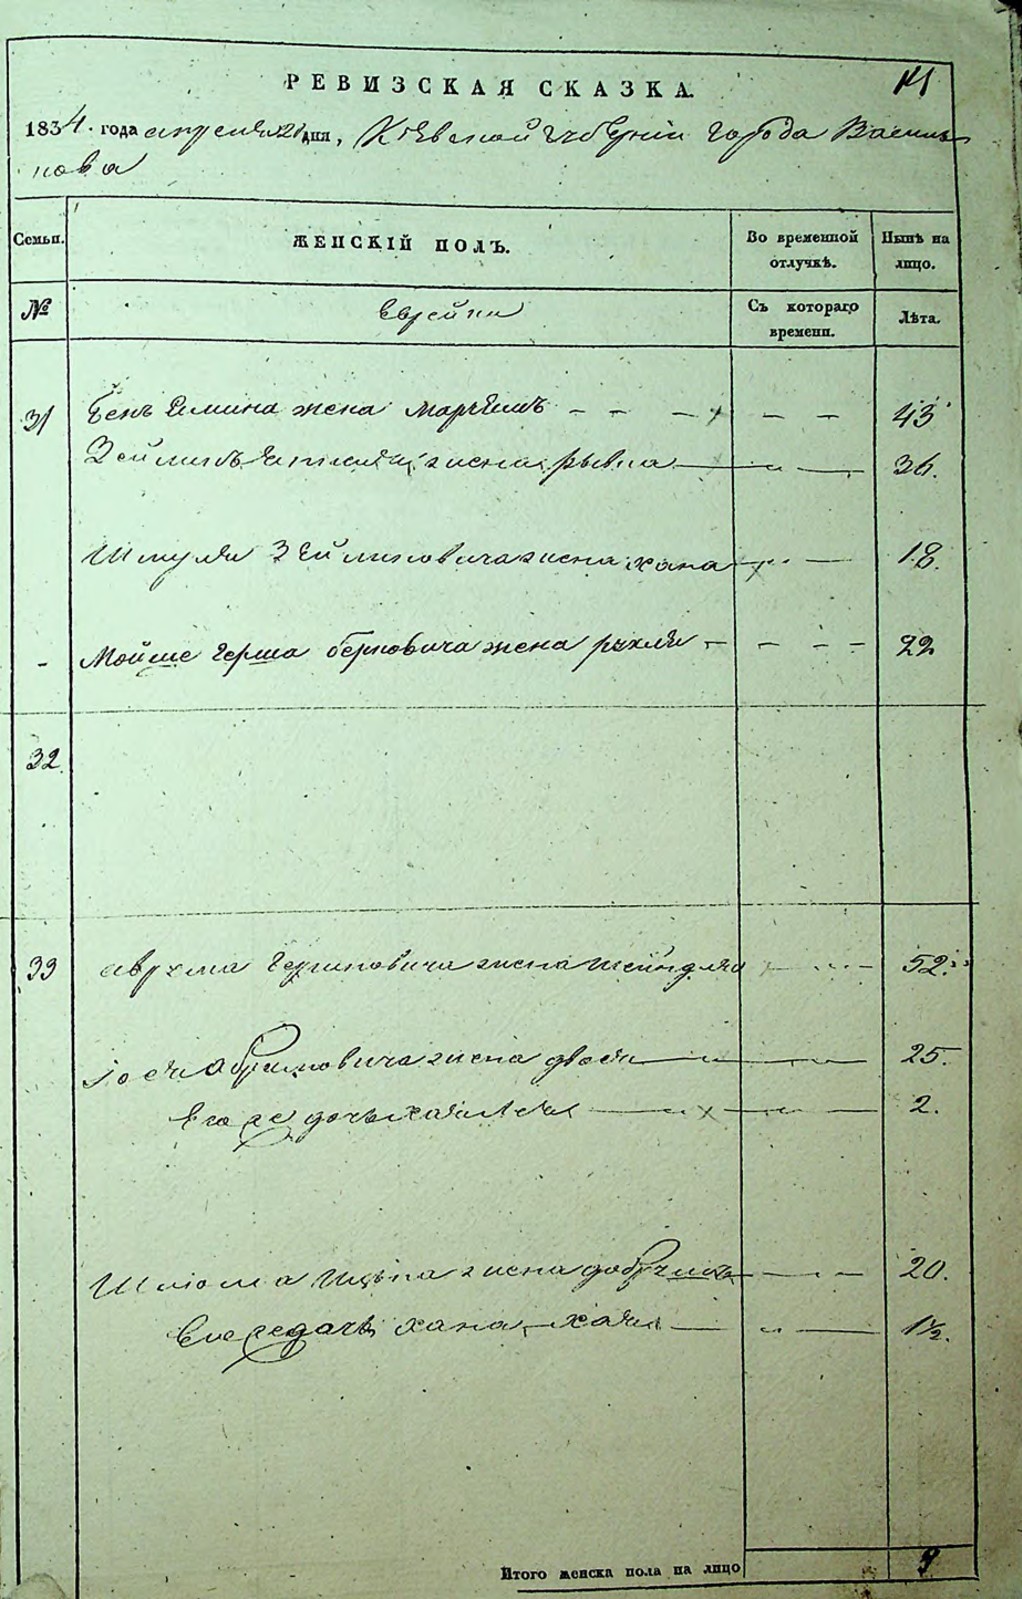 РЕВИЗСКАЯ СКАЗКА.
1834. года апреля 21 дня, Кіевской губерніи города Василь
кова
Семьи. ЖЕНСКІЙ ПОЛЪ. Во временной отлучкѣ. Нынѣ на лицо.
№ Еврейки Съ котораго времени. Лѣта.
31 жена 43
жена рывка 36.
Шмуля Зейликовича жена хана 18.
Мойше Герша берковича жена рухля 22
32
33 аврума Гершковича жена шейндля 52.
абрамовича жена двося 25.
Его же дочь 2.
Шлиома ицька жена 20.
Его же дочь хана хая 1½.
Итого женска пола на лицо 9